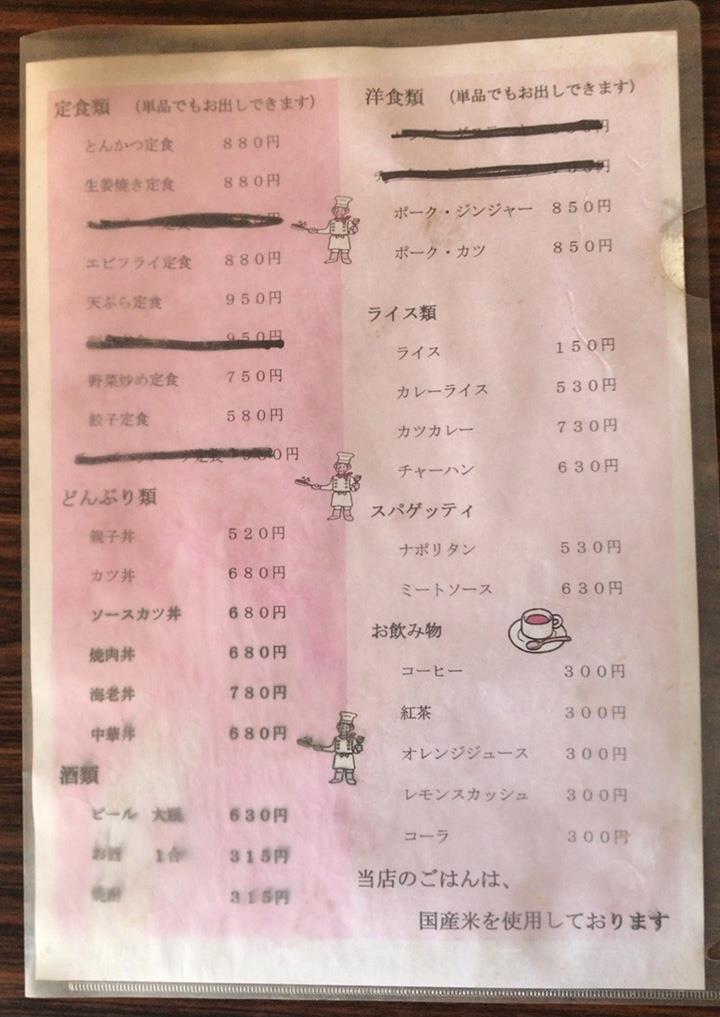 定食類 （単品でもお出しできます）
とんかつ定食 ８８０円
生姜焼き定食 ８８０円
エビフライ定食 ８８０円
天ぷら定食 ９５０円
９５０円
野菜炒め定食 ７５０円
餃子定食 ５８０円
定食 円
どんぶり類
親子丼 ５２０円
カツ丼 ６８０円
ソースカツ丼 ６８０円
焼肉丼 ６８０円
海老丼 ７８０円
中華丼 ６８０円
酒類
ビール 大瓶 ６３０円
お酒 １合 ３１５円
焼酎 ３１５円
洋食類 （単品でもお出しできます）
ポーク・ジンジャー ８５０円
ポーク・カツ ８５０円
ライス類
ライス １５０円
カレーライス ５３０円
カツカレー ７３０円
チャーハン ６３０円
スパゲッティ
ナポリタン ５３０円
ミートソース ６３０円
お飲み物
コーヒー ３００円
紅茶 ３００円
オレンジジュース ３００円
レモンスカッシュ ３００円
コーラ ３００円
当店のごはんは、
国産米を使用しております